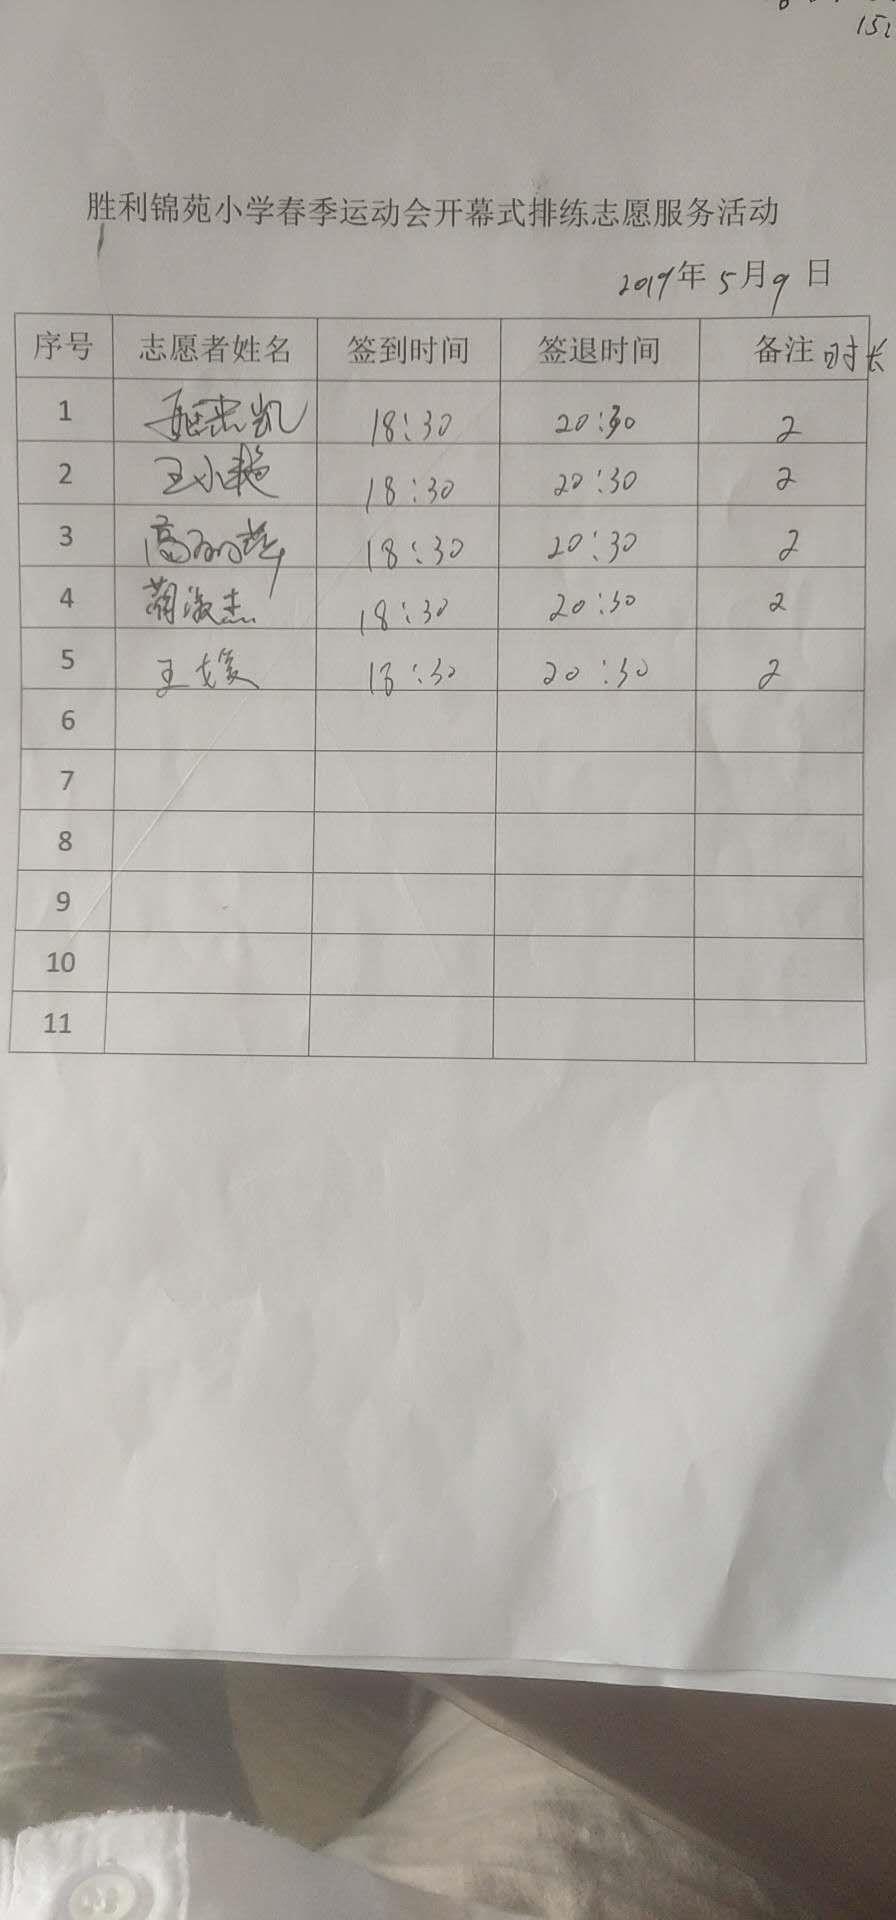 152
胜利锦苑小学春季运动会开幕式排练志愿服务活动
2019年5月9日
序号 志愿者姓名 签到时间 签退时间 备注 时长
1 凯 18:30 20:30 2
2 王小艳 18:30 20:30 2
3 高 18:30 20:30 2
4 淑杰 18:30 20:30 2
5 王 18:30 20:30 2
6
7
8
9
10
11